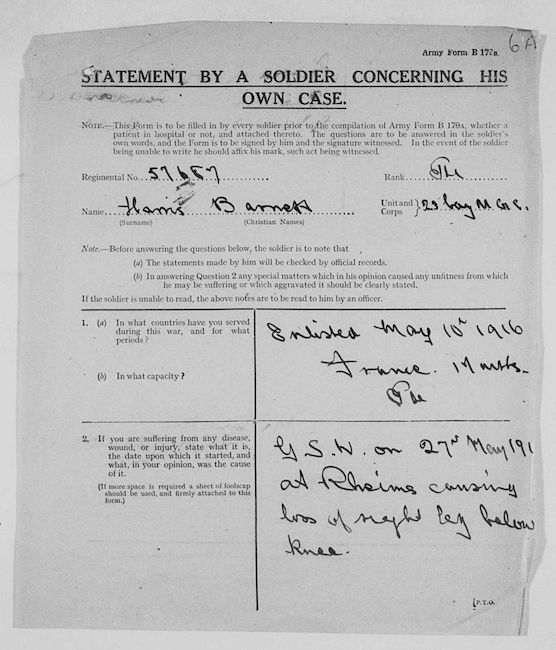 6A
Army Form B 179B.
STATEMENT BY A SOLDIER CONCERNING HIS
OWN CASE.
NOTE.—This Form is to be filled in by every soldier prior to the compilation of Army Form B 179A, whether a
patient in hospital or not, and attached thereto. The questions are to be answered in the soldier's
own words, and the Form is to be signed by him and the signature witnessed. In the event of the soldier
being unable to write he should affix his mark, such act being witnessed.
Regimental No. 57687 Rank Pte
Name Harris Barnett Unit and Corps } 23 Coy M.G.C.
(Surname) (Christian Names)
Note.—Before answering the questions below, the soldier is to note that
(a) The statements made by him will be checked by official records.
(b) In answering Question 2 any special matters which in his opinion caused any unfitness from which
he may be suffering or which aggravated it should be clearly stated.
If the soldier is unable to read, the above notes are to be read to him by an officer.
1. (a) In what countries have you served
during this war, and for what
periods?
Enlisted May 10th 1916
France. mnths.
(b) In what capacity?
Pte
2. If you are suffering from any disease,
wound, or injury, state what it is,
the date upon which it started, and
what, in your opinion, was the cause
of it.
(If more space is required a sheet of foolscap
should be used, and firmly attached to this
form.)
G.S.W. on 27th May 191
at Rheims causing
loss of right leg below
knee.
[P.T.O.